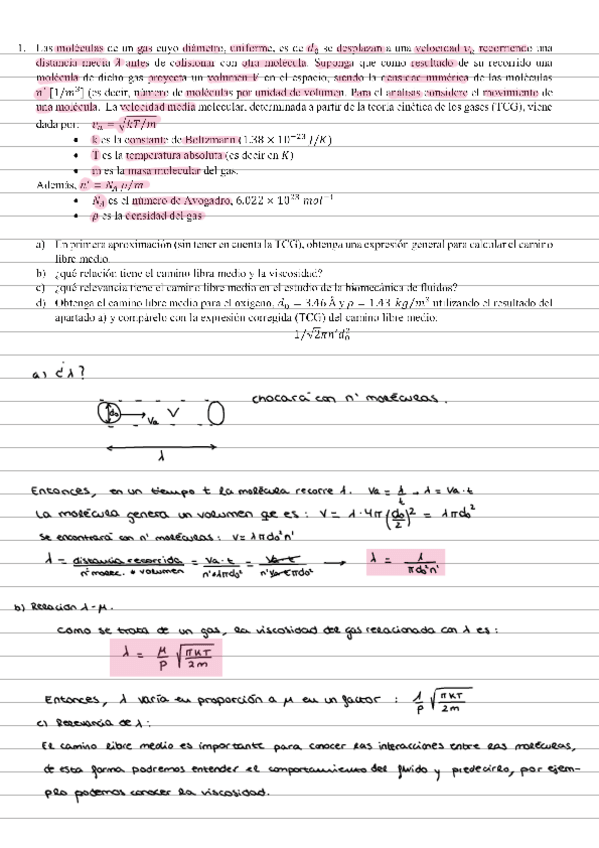 1. Las moléculas de un gas cuyo diámetro, uniforme, es de d₀ se desplazan a una velocidad vₐ, recorriendo una
distancia media λ antes de colisionar con otra molécula. Suponga que como resultado de su recorrido una
molécula de dicho gas proyecta un volumen V en el espacio, siendo la densidad numérica de las moléculas
n' [1/m³] (es decir, número de moléculas por unidad de volumen. Para el análisis considere el movimiento de
una molécula. La velocidad media molecular, determinada a partir de la teoría cinética de los gases (TCG), viene
dada por: vₐ = √kT/m
• k es la constante de Boltzmann (1.38 × 10⁻²³ J/K)
• T es la temperatura absoluta (es decir en K)
• m es la masa molecular del gas.
Además, n' = N_A ρ/m
• N_A es el número de Avogadro, 6.022 × 10²³ mol⁻¹
• ρ es la densidad del gas
a) En primera aproximación (sin tener en cuenta la TCG), obtenga una expresión general para calcular el camino
libre medio.
b) ¿qué relación tiene el camino libre medio y la viscosidad?
c) ¿qué relevancia tiene el camino libre medio en el estudio de la biomecánica de fluidos?
d) Obtenga el camino libre medio para el oxígeno, d₀ = 3.46 Å y ρ = 1.43 kg/m³ utilizando el resultado del
apartado a) y compárelo con la expresión corregida (TCG) del camino libre medio.
1/√2πn'd₀²
a) ¿λ?
chocará con n' moléculas.
d₀ Va V
λ
Entonces, en un tiempo t la molécula recorre λ. Va = λ/t → λ = Va · t
La molécula genera un volumen qe es: V = λ · 4π (d₀/2)² = λπd₀²
Se encontrará con n' moléculas: V = λπd₀²n'
λ = distancia recorrida / n' molec. * volumen = Va · t / n'*λπd₀² = Va · t / n'Va·tπd₀² → λ = 1/πd₀²n'
b) Relación λ-μ.
Como se trata de un gas, la viscosidad del gas relacionada con λ es:
λ = μ/ρ √πKT/2m
Entonces, λ varía en proporción a μ en un factor : 1/ρ √πKT/2m
c) Relevancia de λ:
El camino libre medio es importante para conocer las interacciones entre las moléculas,
de esta forma podremos entender el comportamiento del fluido y predecirlo, por ejem-
plo podemos conocer la viscosidad.